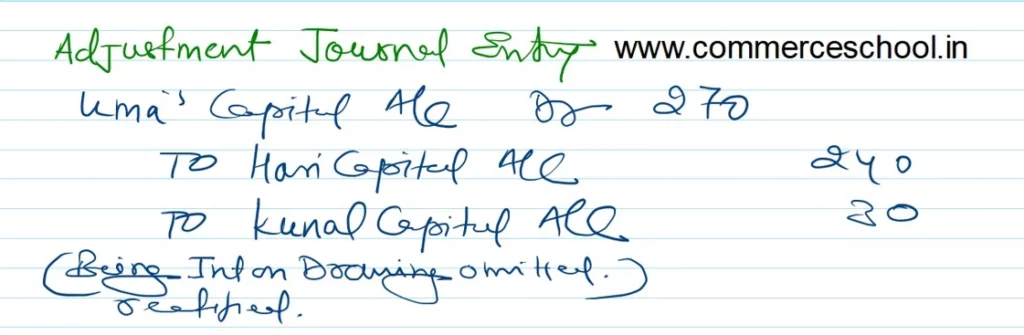 Adjustment Journal Entry www.commerceschool.in
Uma's Capital A/c Dr 270
To Hari Capital A/c 240
To Kunal Capital A/c 30
(Being Int on Drawing omitted.)
rectified.